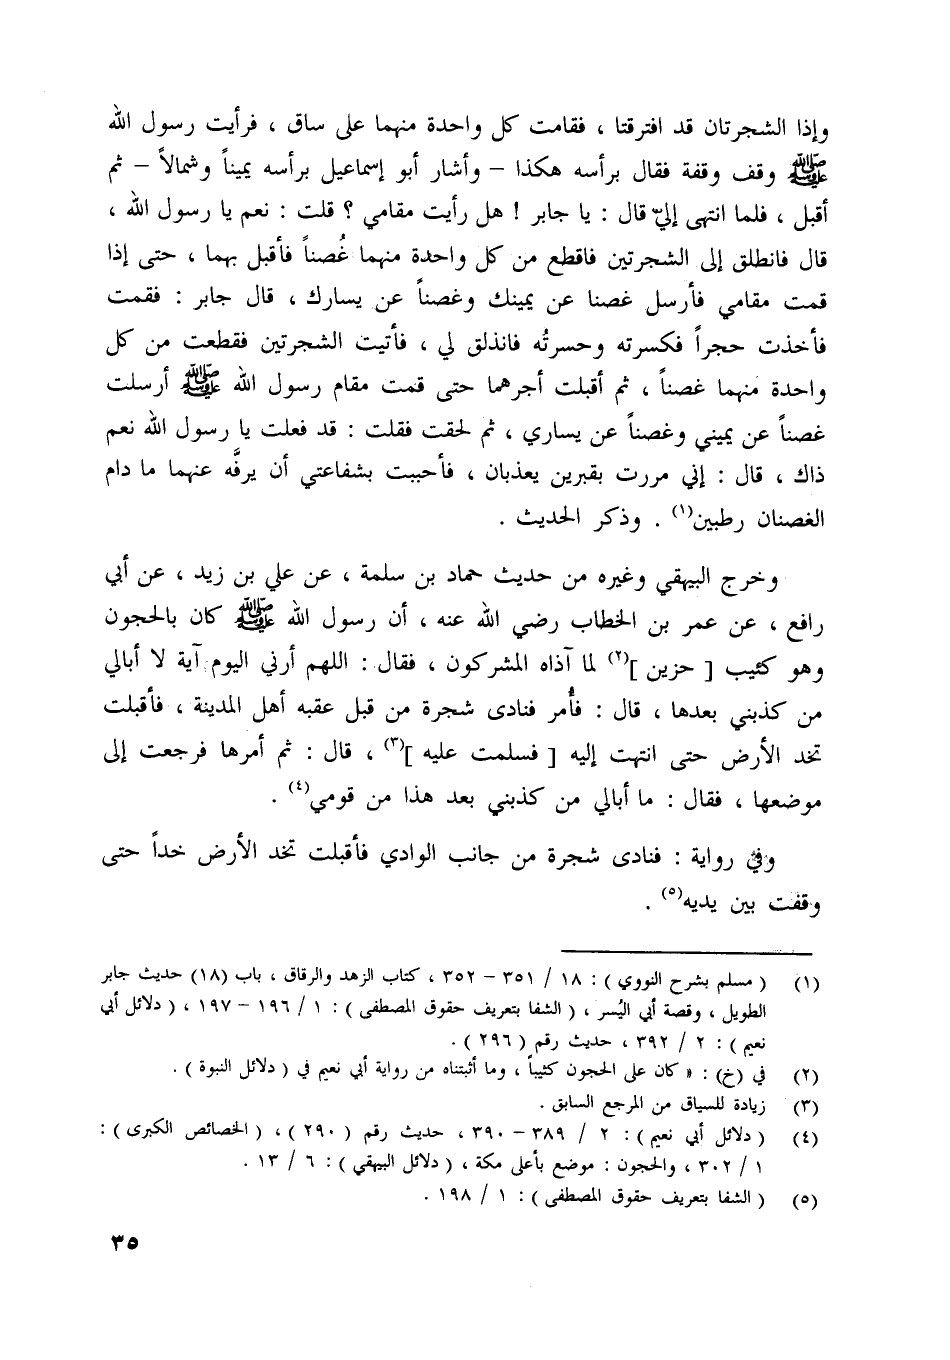 وإذا الشجرتان قد افترقتا ، فقامت كل واحدة منهما على ساق ، فرأيت رسول الله
ﷺ وقف وقفة فقال برأسه هكذا – وأشار أبو إسماعيل برأسه يميناً وشمالاً – ثم
أقبل ، فلما انتهى إليّ قال : يا جابر ! هل رأيت مقامي ؟ قلت : نعم يا رسول الله ،
قال فانطلق إلى الشجرتين فاقطع من كل واحدة منهما غُصناً فأقبل بهما ، حتى إذا
قمت مقامي فأرسل غصنا عن يمينك وغصناً عن يسارك ، قال جابر : فقمت
فأخذت حجراً فكسرته وحسرتُه فانذلق لي ، فأتيت الشجرتين فقطعت من كل
واحدة منهما غصناً ، ثم أقبلت أجرهما حتى قمت مقام رسول الله ﷺ أرسلت
غصناً عن يميني وغصناً عن يساري ، ثم لحقت فقلت : قد فعلت يا رسول الله نعم
ذاك ، قال : إني مررت بقبرين يعذبان ، فأحببت بشفاعتي أن يرفَّه عنهما ما دام
الغصنان رطبين(١) . وذكر الحديث .
وخرج البيهقي وغيره من حديث حماد بن سلمة ، عن علي بن زيد ، عن أبي
رافع ، عن عمر بن الخطاب رضي الله عنه ، أن رسول الله ﷺ كان بالحجون
وهو كئيب [ حزين ](٢) لما آذاه المشركون ، فقال : اللهم أرني اليوم آية لا أبالي
من كذبني بعدها ، قال : فأُمر فنادى شجرة من قبل عقبه أهل المدينة ، فأقبلت
تخد الأرض حتى انتهت إليه [ فسلمت عليه ](٣) ، قال : ثم أمرها فرجعت إلى
موضعها ، فقال : ما أبالي من كذبني بعد هذا من قومي(٤) .
وفي رواية : فنادى شجرة من جانب الوادي فأقبلت تخد الأرض خداً حتى
وقفت بين يديه(٥) .
(١) ( مسلم بشرح النووي ) : ١٨ / ٣٥١ – ٣٥٢ ، كتاب الزهد والرقاق ، باب (١٨) حديث جابر
الطويل ، وقصة أبي اليُسر ، ( الشفا بتعريف حقوق المصطفى ) : ١ / ١٩٦ – ١٩٧ ، ( دلائل أبي
نعيم ) : ٢ / ٣٩٢ ، حديث رقم ( ٢٩٦ ) .
(٢) في (خ) : « كان على الحجون كئيباً ، وما أثبتناه من رواية أبي نعيم في ( دلائل النبوة ) .
(٣) زيادة للسياق من المرجع السابق .
(٤) ( دلائل أبي نعيم ) : ٢ / ٣٨٩ – ٣٩٠ ، حديث رقم ( ٢٩٠ ) ، ( الخصائص الكبرى ) :
١ / ٣٠٢ ، والحجون : موضع بأعلى مكة ، ( دلائل البيهقي ) : ٦ / ١٣ .
(٥) ( الشفا بتعريف حقوق المصطفى ) : ١ / ١٩٨ .
٣٥